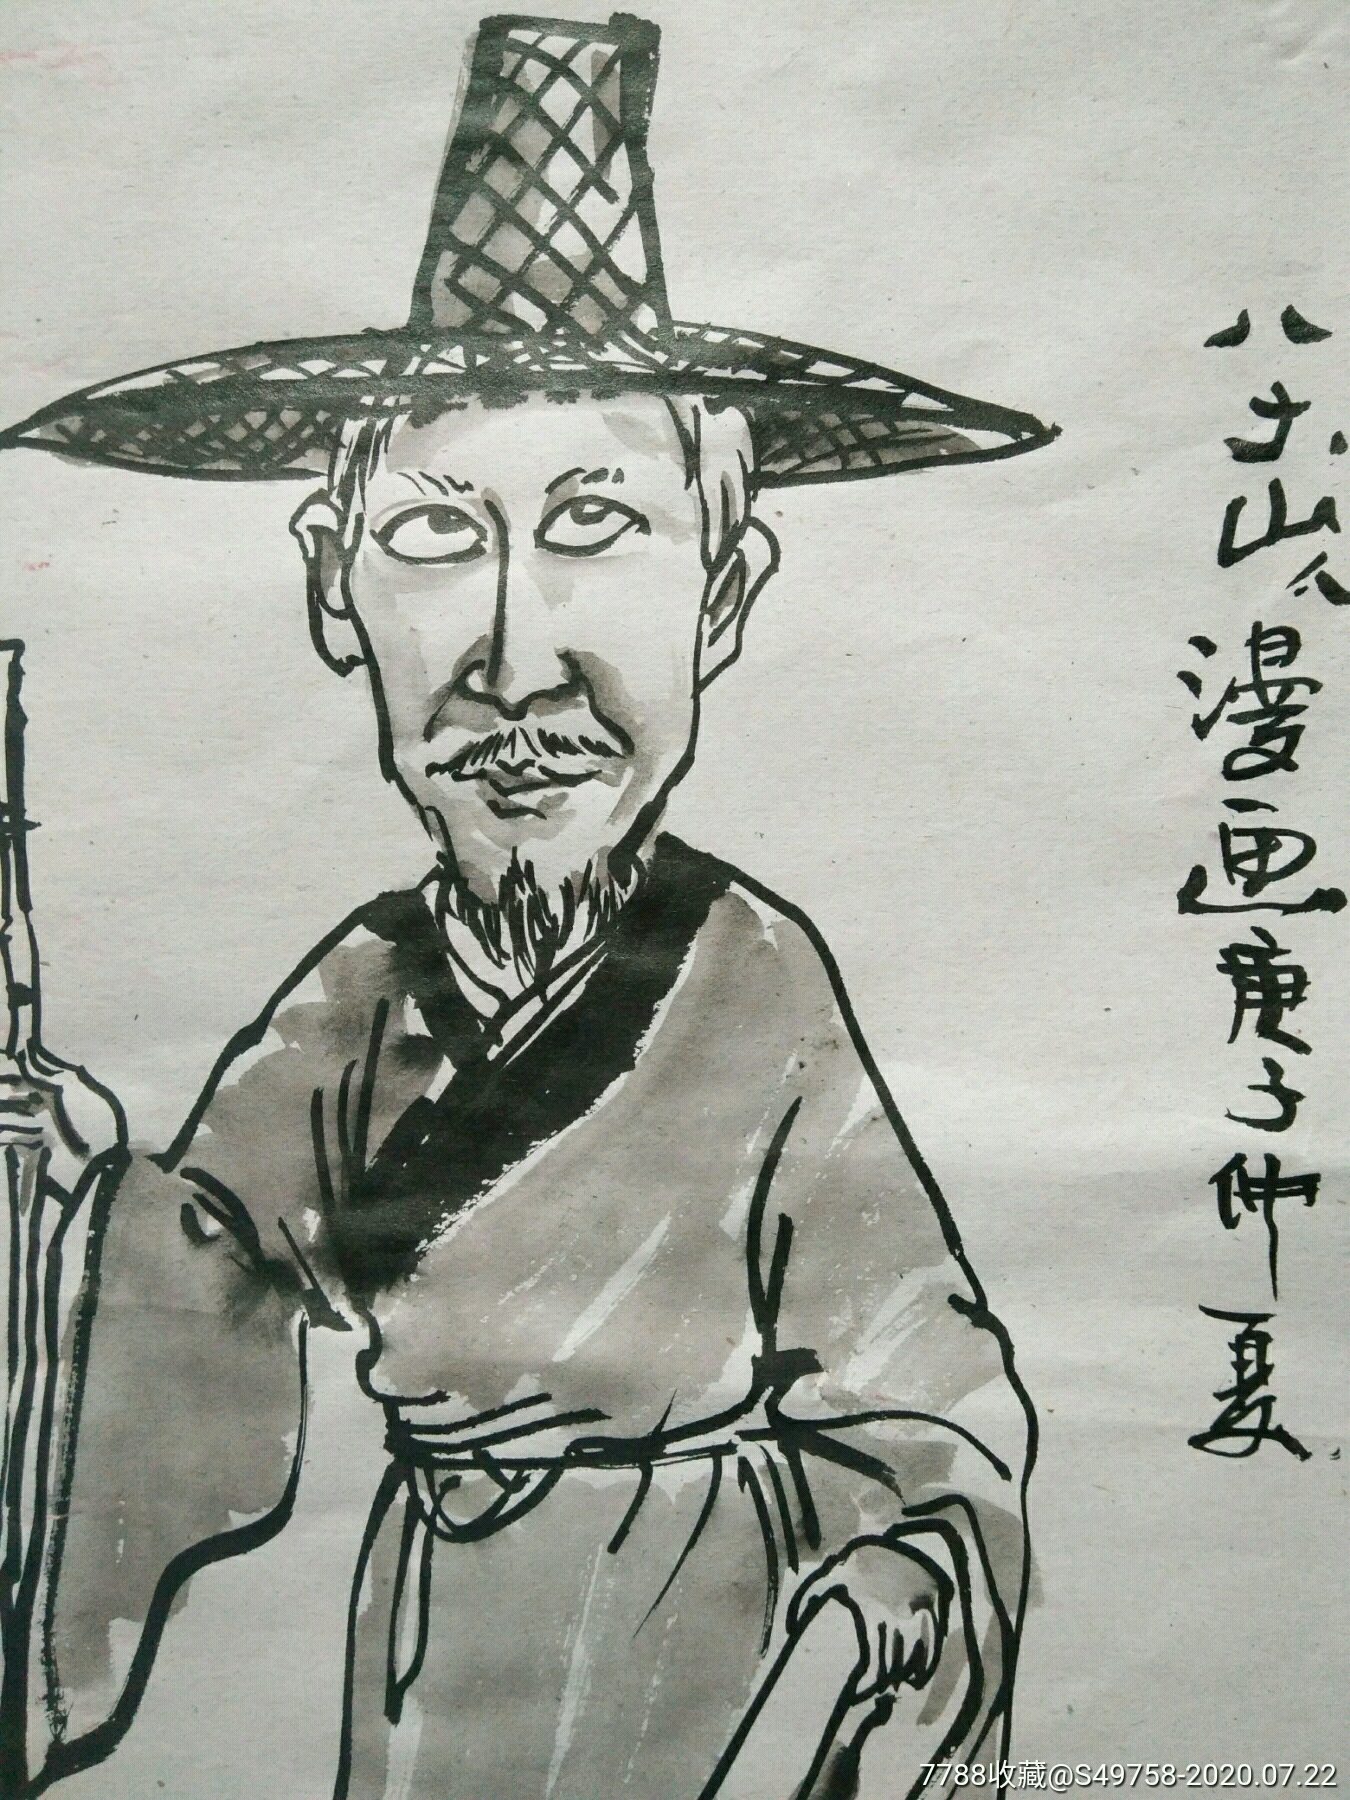 八大山人漫画庚子仲夏
7788收藏@S49758-2020.07.22